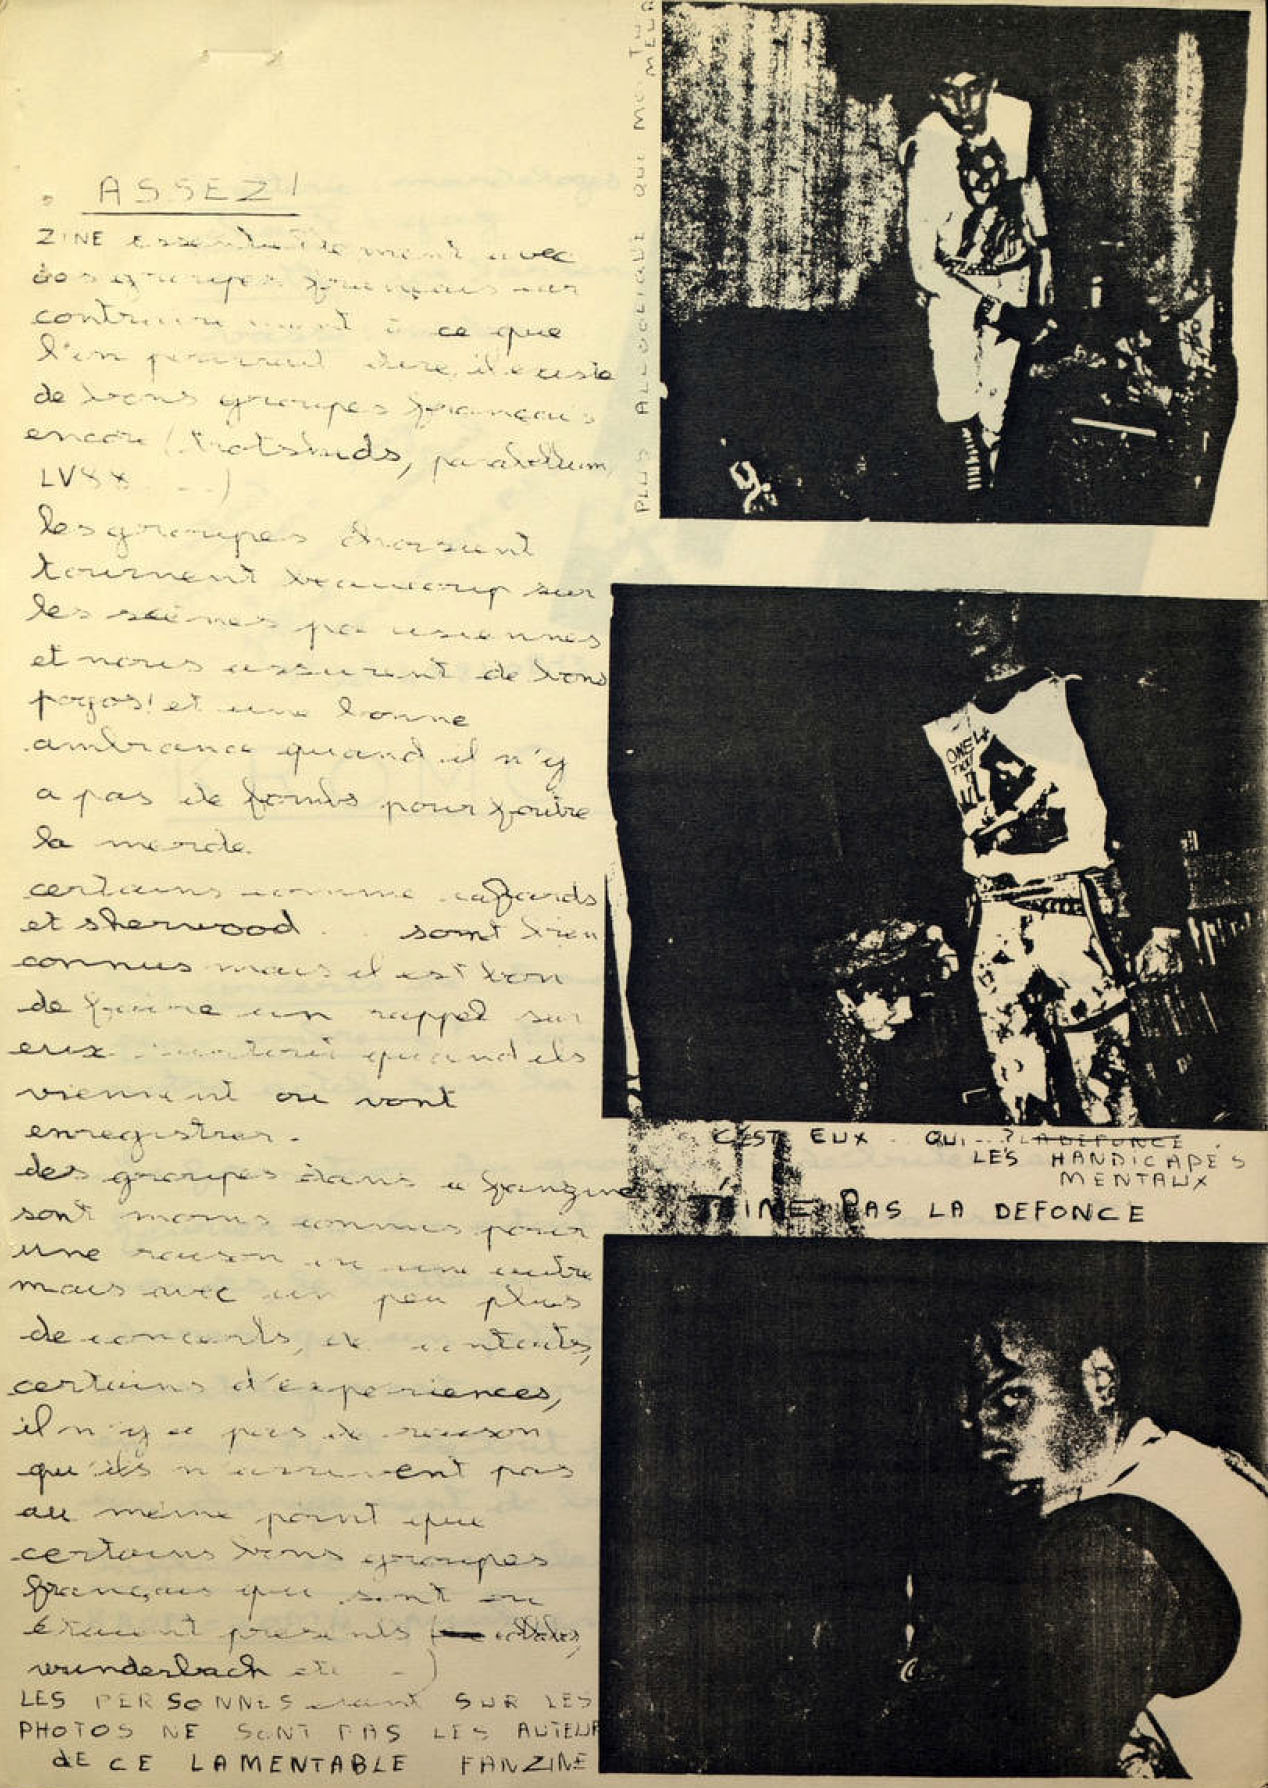 ASSEZ!
ZINE essentiellement avec
des groupes français car
contrairement à ce que
l'on pourrait dire, il existe
de bons groupes français
encore (trotskids, parabellum,
LV88 ...)
les groupes
tournent beaucoup sur
les scènes parisiennes
et nous assurent de bons
pogos! et une bonne
ambiance quand il n'y
a pas de pour foutre
la merde.
certains comme cafards
et sherwood .. sont bien
connus mais il est bon
de faire un rappel sur
eux surtout quand ils
viennent ou vont
enregistrer.
des groupes dans ce fanzine
sont moins connus pour
une raison ou une autre
mais avec un peu plus
de concerts, de contacts,
certains d'experiences,
il n'y a pas de raison
qu'ils n'arrivent pas
au même point que
certains bons groupes
français qui sont ou
étaient présents (
wunderbach etc -)
LES PERSONNES étant SUR LES
PHOTOS NE SONT PAS LES AUTEUR
dE CE LAMENTABLE FANZINE
PLUS ALCOOLIQUE QUE MOI TU
MEUR
ONE
C'EST EUX QUI ...? LA DEFONCE
LES HANDICAPÉS
MENTAUX
J'AIME PAS LA DEFONCE